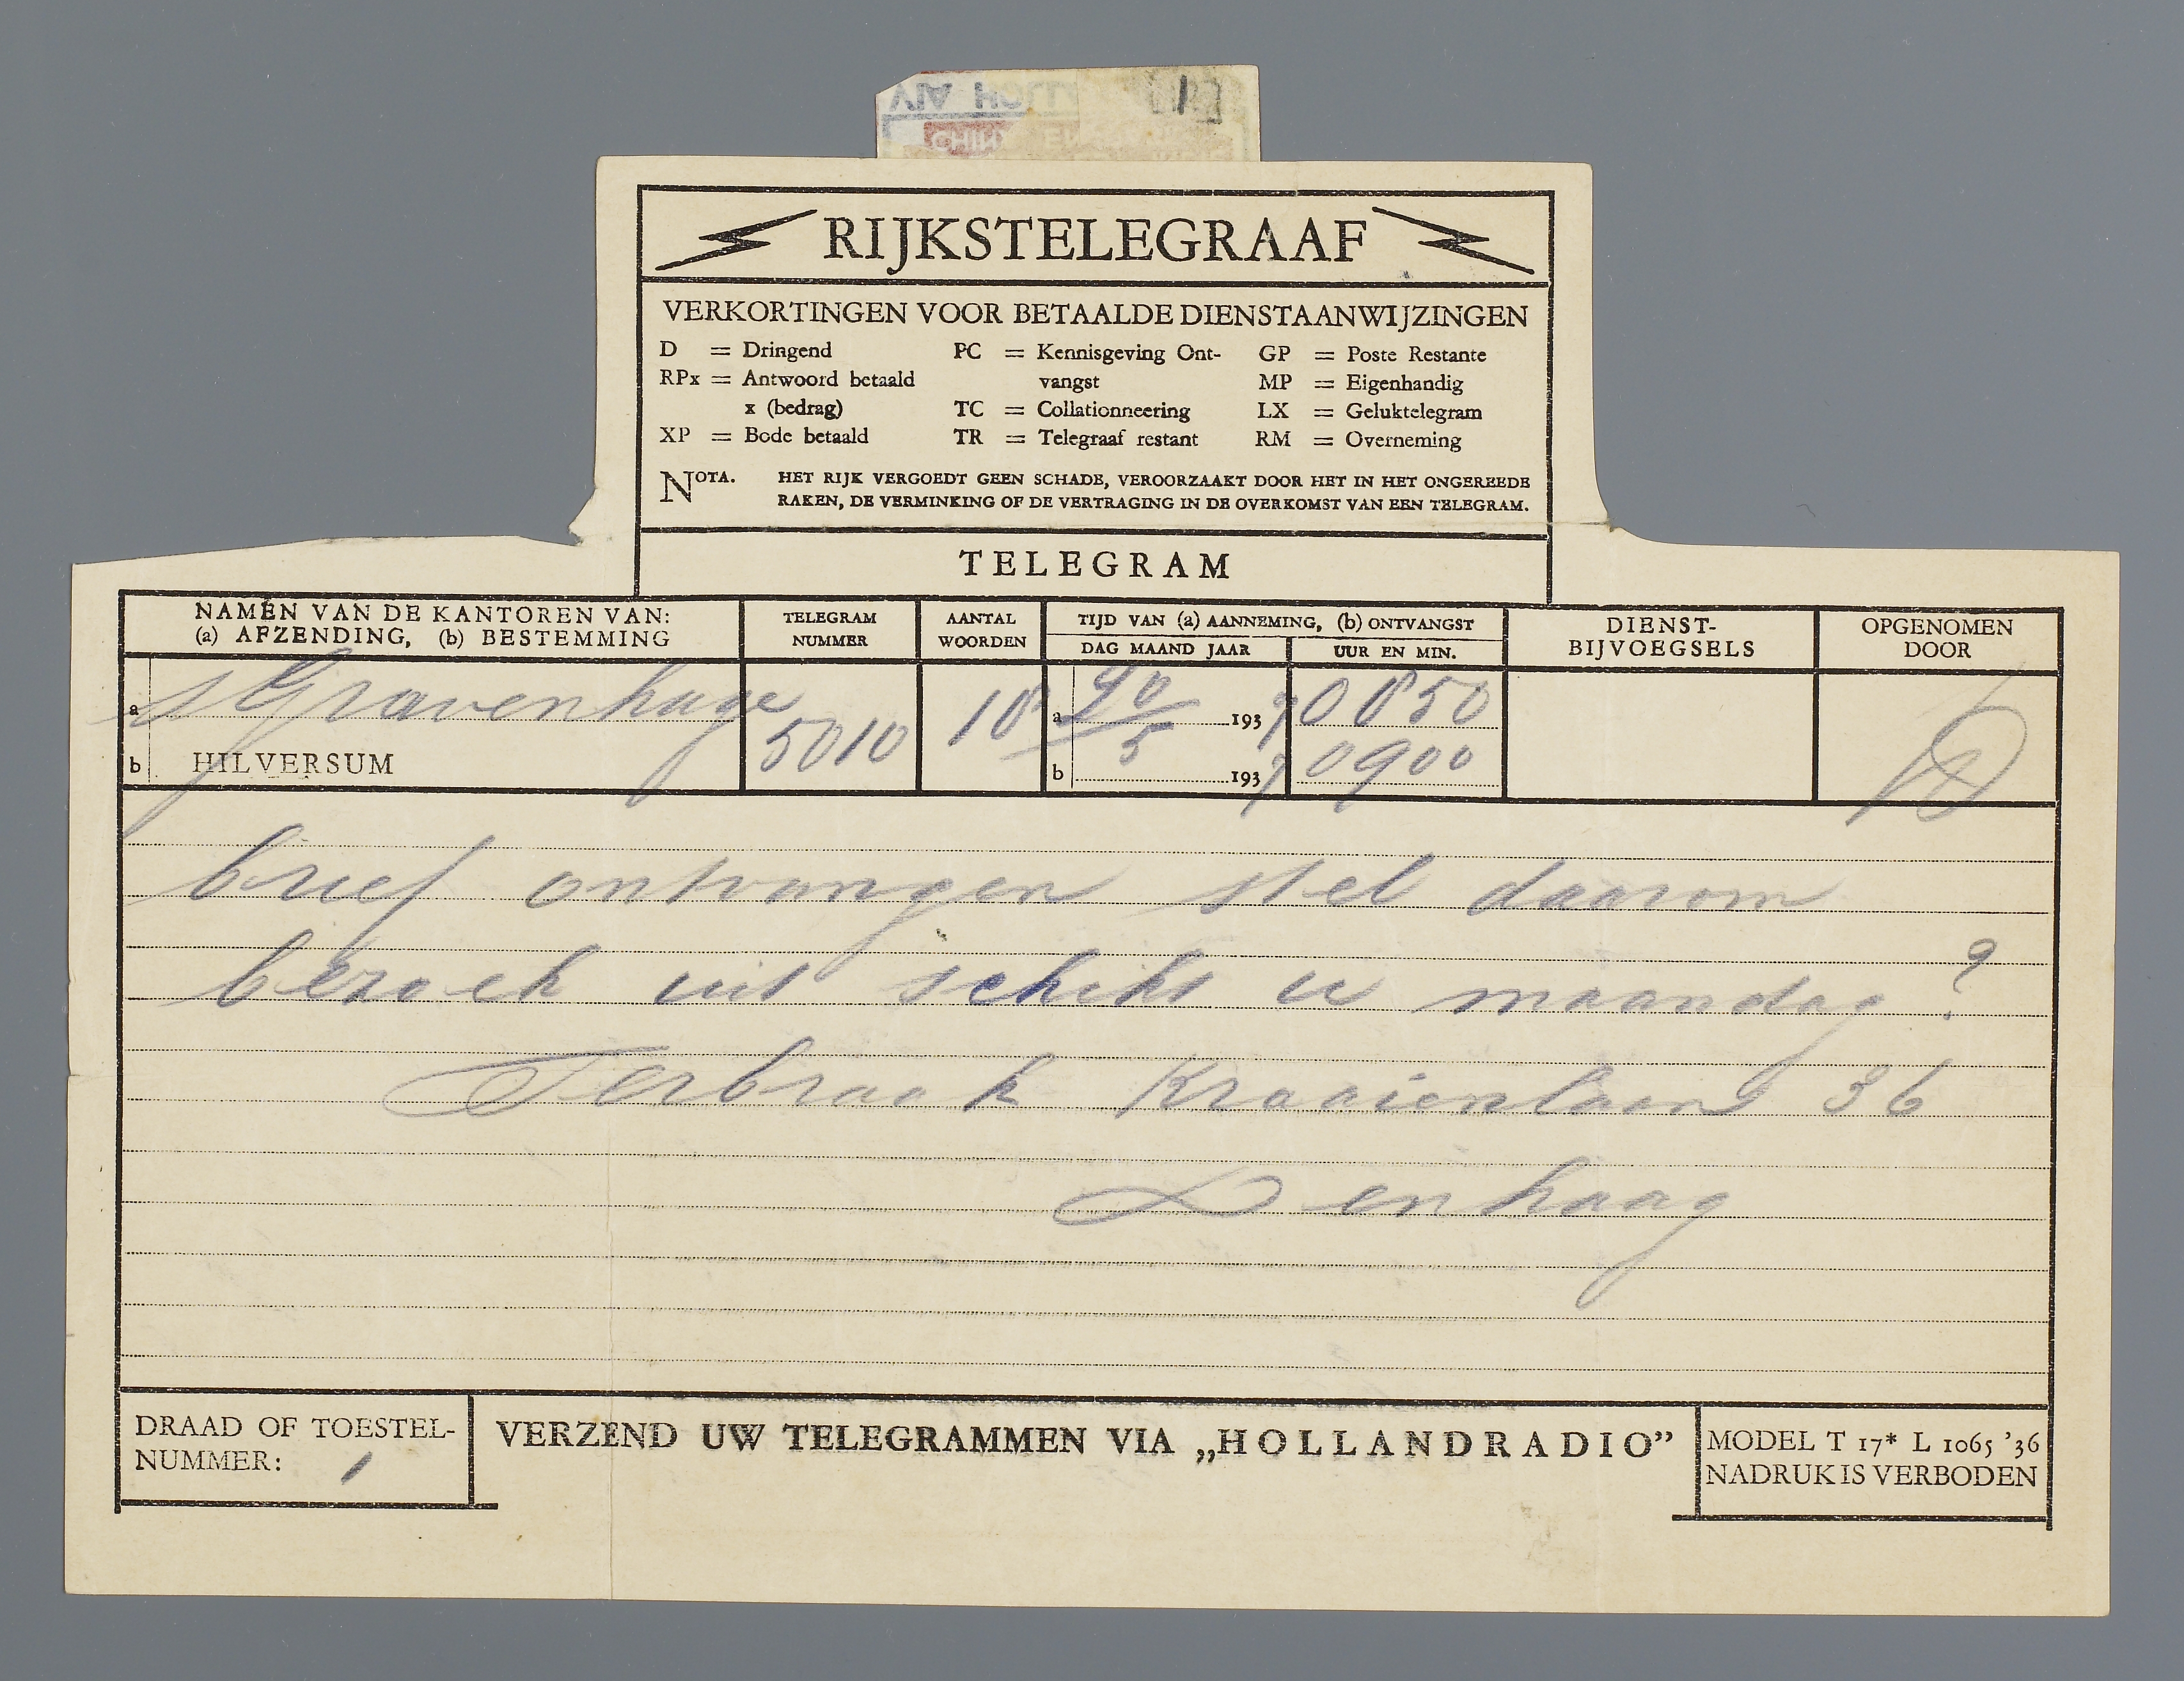 RIJKSTELEGRAAF
VERKORTINGEN VOOR BETAALDE DIENSTAANWIJZINGEN
D = Dringend
RPx = Antwoord betaald
x (bedrag)
XP = Bode betaald
PC = Kennisgeving Ont-
vangst
TC = Collationneering
TR = Telegraaf restant
GP = Poste Restante
MP = Eigenhandig
LX = Geluktelegram
RM = Overneming
NOTA. HET RIJK VERGOEDT GEEN SCHADE, VEROORZAAKT DOOR HET IN HET ONGEREEDE
RAKEN, DE VERMINKING OF DE VERTRAGING IN DE OVERKOMST VAN EEN TELEGRAM.
TELEGRAM
NAMEN VAN DE KANTOREN VAN:
(a) AFZENDING, (b) BESTEMMING
TELEGRAM
NUMMER
AANTAL
WOORDEN
TIJD VAN (a) AANNEMING, (b) ONTVANGST
DAG MAAND JAAR
UUR EN MIN.
DIENST-
BIJVOEGSELS
OPGENOMEN
DOOR
a s Gravenhage
b HILVERSUM
5010
18
a 20/5 1937 0850
b 1937 0900
brief ontvangen stel daarom
bezoek uit schikt u maandag ?
Terbraak Kraaienlaan 36
Denhaag
DRAAD OF TOESTEL-
NUMMER: 1
VERZEND UW TELEGRAMMEN VIA „HOLLANDRADIO”
MODEL T 17* L 1065 '36
NADRUK IS VERBODEN